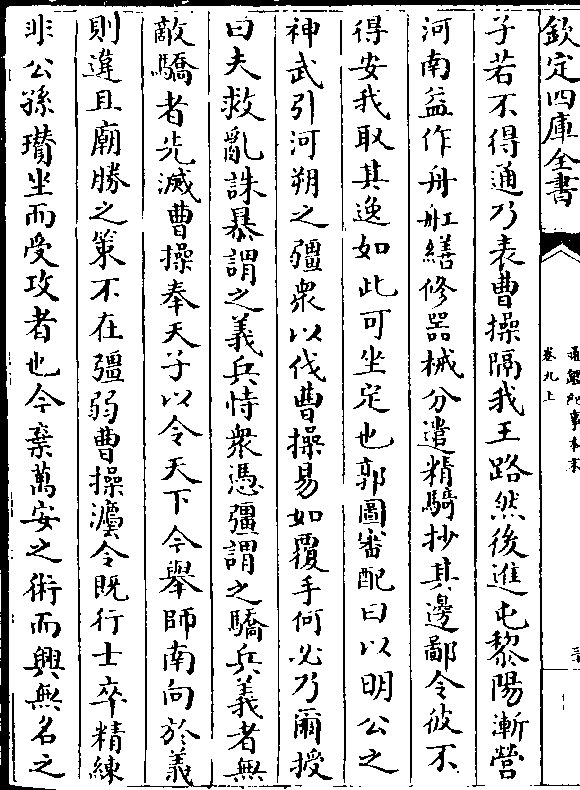 欽定四庫全書
通鑑紀事本末
卷九上
子若不得通乃表曹操隔我王路然後進屯黎陽漸營
河南益作舟舡繕修器械分遣精騎抄其邊鄙令彼不
得安我取其逸如此可坐定也郭圖審配曰以明公之
神武引河朔之彊衆以伐曹操易如覆手何必乃爾授
曰夫救亂誅暴謂之義兵恃衆憑彊謂之驕兵義者無
敵驕者先滅曹操奉天子以令天下今舉師南向於義
則違且廟勝之策不在彊弱曹操灋令既行士卒精練
非公孫瓚坐而受攻者也今棄萬安之術而興無名之